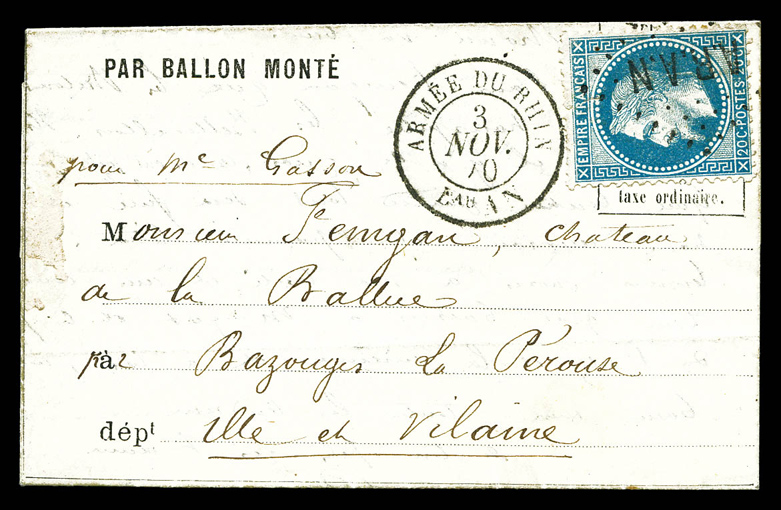 PAR BALLON MONTÉ
ARMÉE DU RHIN
3
NOV.
70
Eau AN
EMPIRE FRANÇAIS
20 C POSTES 20 C
taxe ordinaire.
pour Mc Gasson
Monsieur Femgau, chateau
de la Ballue
par Bazouges La Pérouse
dépt ille et Vilaine